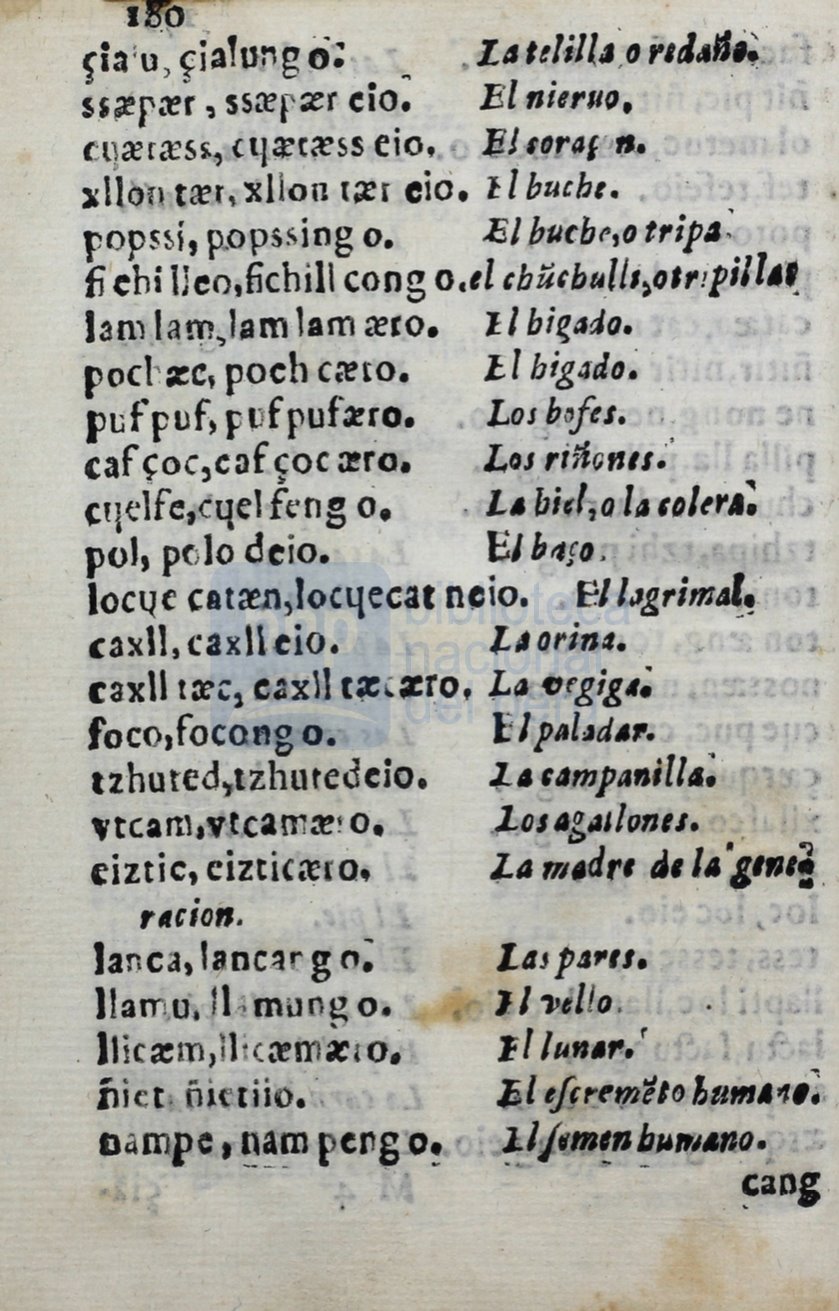 180
çialu, çialungo. La telilla o redaño.
ssæpær, ssæpær eio. El nieruo.
cɥætæss, cɥætæss eio. El coraçon.
xllontær, xllon tær eio. El buche.
popssi, popssing o. El buche, o tripa.
fichilleo, fichill cong o. el chũchulli, o tripillas
lam lam, lam lam æro. El higado.
pochæc, poch cæto. El higado.
puf puf, puf pufæro. Los bofes.
caf çoc, caf çoc æro. Los riñones.
cɥelfe, cɥel feng o. La hiel, o la colera.
pol, polo deio. El baço.
locɥe catæn, locɥecat neio. El lagrimal.
caxll, caxll eio. La orina.
caxll tæc, caxll tæcæro. La vegiga.
foco, focong o. El paladar.
tzhuted, tzhutedeio. La campanilla.
vtcam, vtcamæro. Los agallones.
eiztic, eizticæro. La madre de la gene
racion.
lanca, lancang o. Las pares.
llamu, llamung o. El vello.
llicæm, llicæmæro. El lunar.
ñiet ñietiio. El escremẽto humano.
nampe, nam peng o. El semen humano.
cang
biblioteca
nacional
del perú